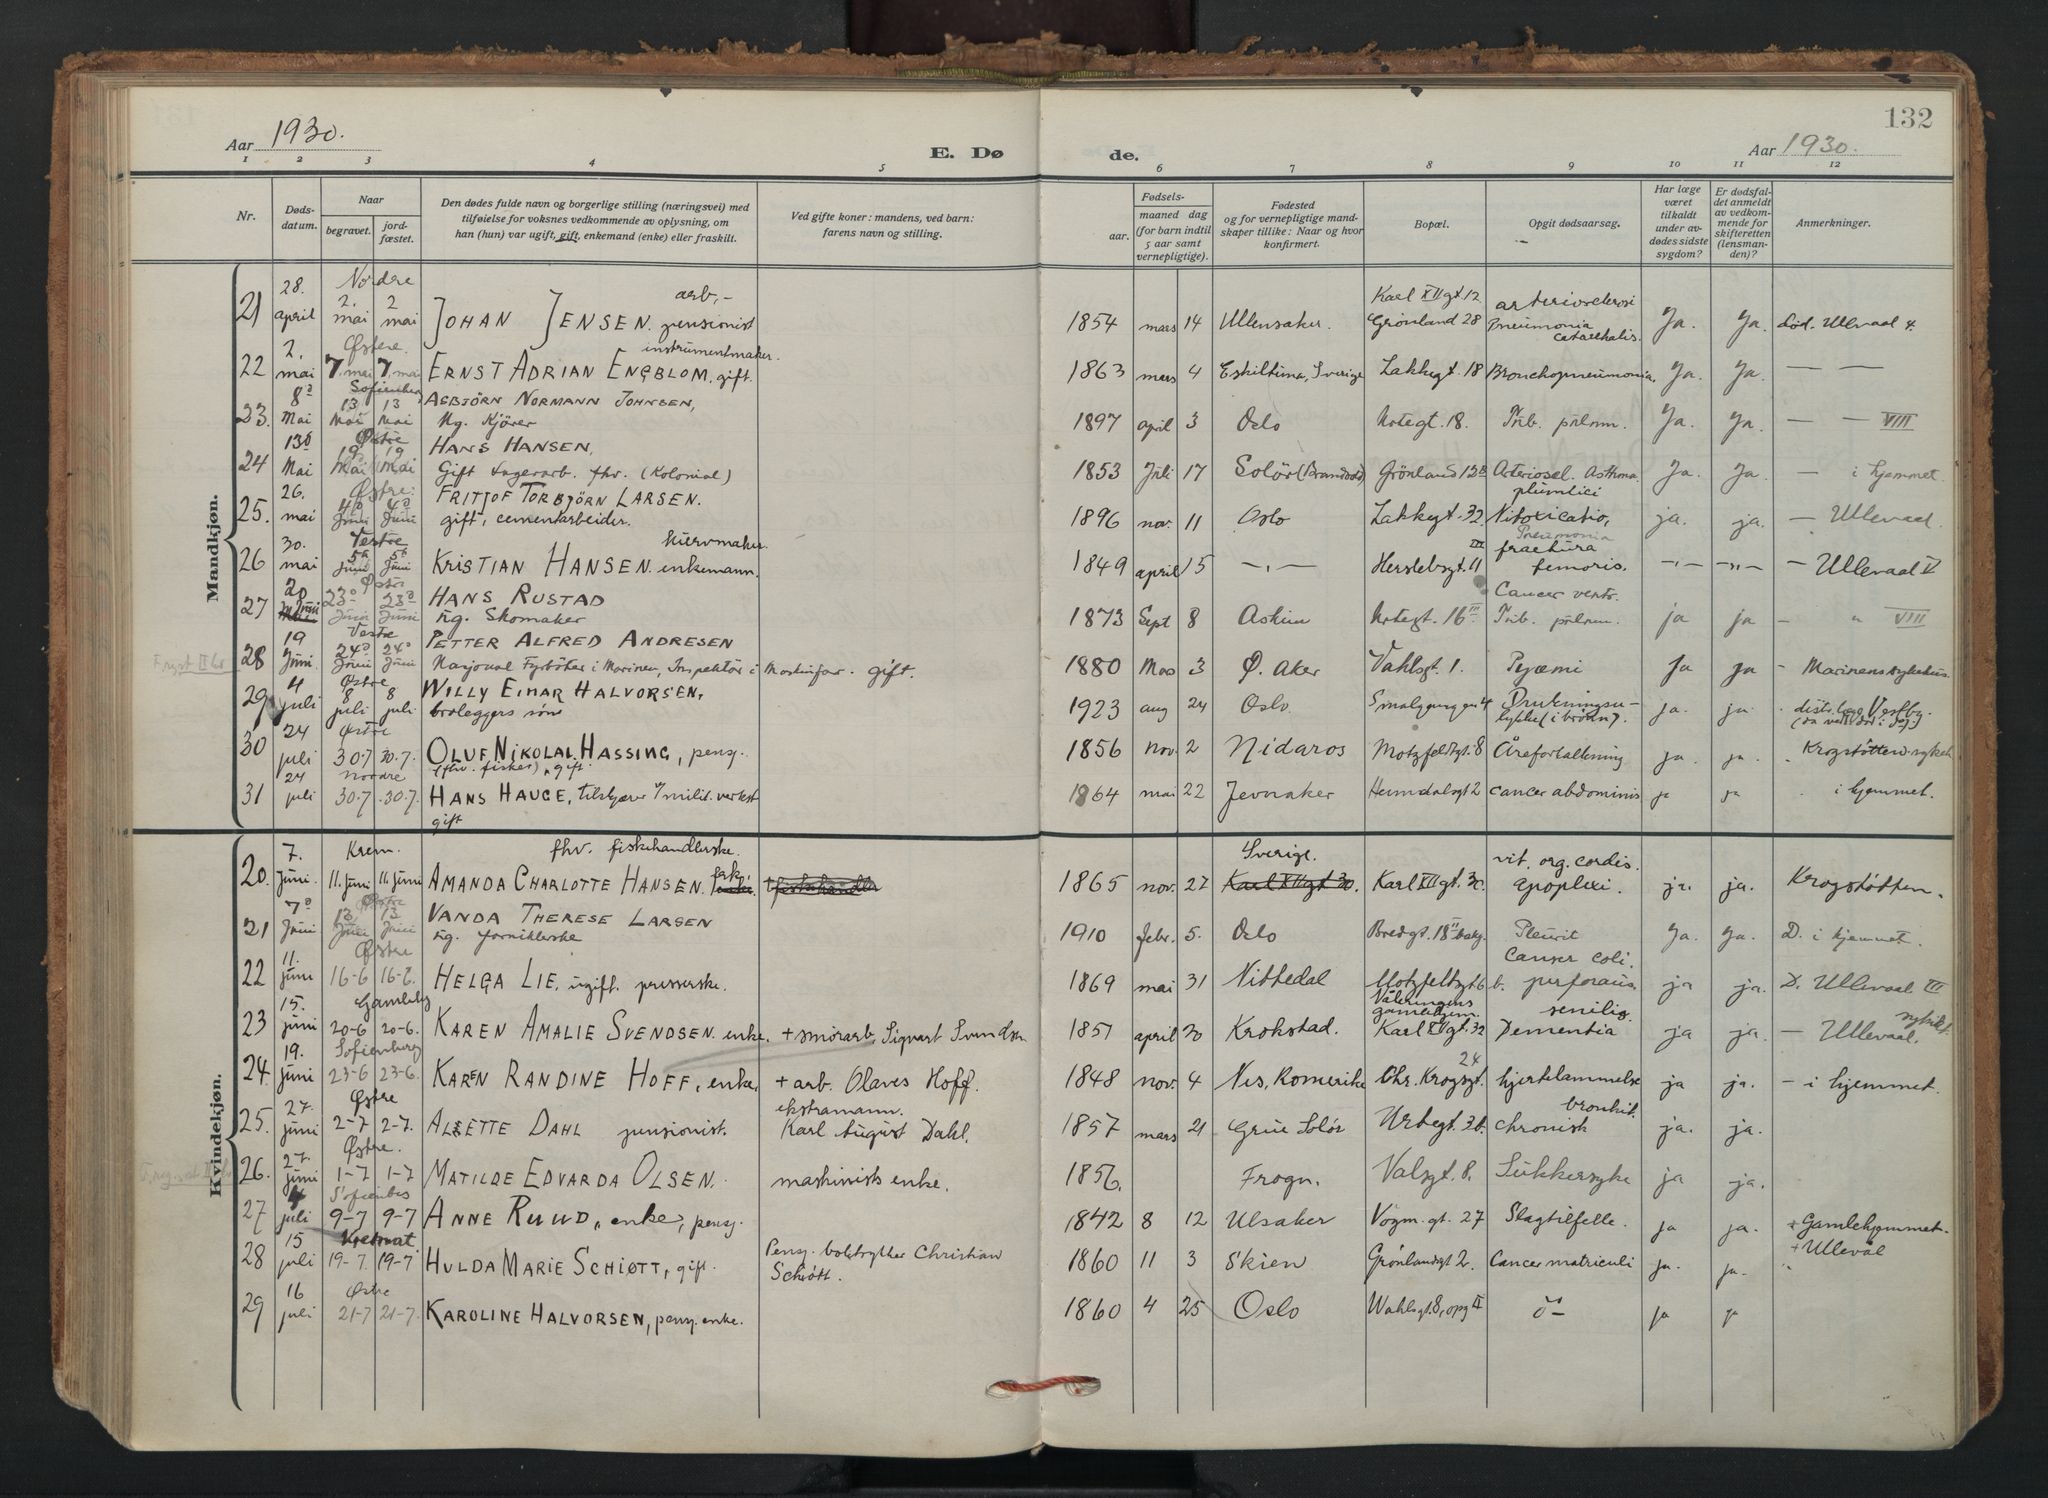 132
Aar 1930.
E. Dø
de.
Aar 1930.
1 2 3 4 5 6 7 8 9 10 11 12
Nr.
Døds-
datum.
Naar
begravet.
jord-
fæstet.
Den dødes fulde navn og borgerlige stilling (næringsvei) med
tilføielse for voksnes vedkommende av oplysning, om
han (hun) var ugift, gift, enkemand (enke) eller fraskilt.
Ved gifte koner: mandens, ved barn:
farens navn og stilling.
Fødsels-
aar.
maaned dag
(for barn indtil
5 aar samt
vernepligtige).
Fødested
og for vernepligtige mand-
skaper tillike: Naar og hvor
konfirmert.
Bopæl.
Opgit dødsaarsag.
Har læge
været
tilkaldt
under av-
dødes sidste
sygdom?
Er dødsfal-
det anmeldt
av vedkom-
mende for
skifteretten
(lensman-
den)?
Anmerkninger.
Mandkjøn.
28. Nordre arb. Karl XII gt. 12
21 april 2. mai 2 mai JOHAN JENSEN. pensionist 1854 mars 14 Ullensaker. Grønland 28 Pneumonia Ja. Ja. Ullevaal
2. Østre. instrumentmaker.
22 mai 7. mai 7. mai ERNST ADRIAN ENGBLOM. gift. 1863 mars 4 Eskiltuna, Sverige Lakkegt. 18 Bronchopneumonia. Ja. Ja. — —
8 Sofienberg ASBJÖRN NORMANN JOHNSEN,
23. Mai 13 Mai 13 Mai Ug. Kjörer 1897 april 3 Oslo Urtegt. 18. Tub. pulm. Ja. Ja. — — VIII
13 Østre HANS HANSEN,
24 Mai 19 Mai 19 Mai Gift Lagerarb. fhv. (Kolonial) 1853 Juli 17 Solör (Brandval) Grönland 12 Arteriosel. Asthma Ja. Ja. — i hjemmet.
26. Østre. FRITJOF TORBJÖRN LARSEN.
25. mai 4 Juni 4 Juni gift, cementarbeider. 1896 nov. 11 Oslo Lakkegt. 32 ja. ja. — Ullevaal.
30. Vestre Pneumonia
26 mai 5 Juni 5 Juni KRISTIAN HANSEN. enkemann. 1849 april 15 —„— Herslebsgt. 11 III fractura femoris. —„— —„— — Ullevaal V
20 Østre HANS RUSTAD Cancer ventr.
27 Juni 23 Juni 23 Juni Ug. Skomaker 1873 Sept 8 Askim Urtegt. 16 III Tub. pulm. ja ja — „ VIII
19 Vestre PETTER ALFRED ANDRESEN
28 Juni. 24 Juni 24 Juni Fyrböter i Marinen, Inspektör i gift. 1880 Mas 3 Ø. Aker Vahlsgt. 1. Pyæmi Ja Ja - Marinens sykehus.
4 Østre WILLY EINAR HALVORSEN,
29 juli 8 juli 8 juli. broleggers sönn 1923 aug 24 Oslo. Smalgangen 4 Drukningsu-lykke (i brönn). ja. ja
24 Østre
30 juli 30.7 30.7. OLUF NIKOLAI HASSING, pensj. (fhv. fisker), gift. 1856 nov. 2 Nidaros Motzfeldtgt. 8 Åreforkalkning ja. ja. Krogstötten sykeh.
24 nordre
31 juli 30.7 30.7. HANS HAUGE, tilskjærer v/ milit. verkst gift 1864 mai 22 Jevnaker Heimdalsgt 2 cancer abdominis ja ja i hjemmet.
Kvindekjøn.
7. Krem. fhv. fiskehandlerske. Sverige. vit. org. cordis.
20. Juni. 11. juni 11. juni AMANDA CHARLOTTE HANSEN. 1865 nov. 27 Karl XII gt. 30. Karl XII gt. 30. apoplexi. ja. ja. Krogstötten.
7 Østre VANDA THERESE LARSEN
21 Juni 13 Juni 13 Juni ug. forniklerske 1910 febr. 5. Oslo Bredgt. 18 II bakg. Pleurit Ja. Ja. D. i hjemmet.
11. Østre Cancer coli.
22 juni 16-6 16-6. HELGA LIE, ugift. presserske. 1869 mai 31 Nittedal Motzfeldtsgt 6 b. perforans ja ja. D. Ullevaal III
15. Gamleby Vålerengens gamlehjem. senilis. sykeh.
23 juni 20-6 20-6. KAREN AMALIE SVENDSEN. enke. + smörarb. Sigvart Svendsen 1851 april 30 Krokstad. Karl XII gt. 32 Dementia ja ja. — Ullevaal.
19. Sofienberg 24
24. juni 23-6 23-6. KAREN RANDINE HOFF, enke, + arb. Olaves Hoff. 1848 nov. 4 Nes, Romerike Chr. Krogsgt. hjertelammelse ja ja. - i hjemmet.
27. Østre ekstramann. bronkit.
25. juni 2-7 2-7. ALETTE DAHL pensionist. Karl August Dahl. 1857 mars 21 Grue Solör Urtegt. 36. chronisk ja. ja.
27. Østre.
26. juni 1-7 1-7 MATILDE EDVARDA OLSEN. maskinists enke. 1856. Frogn. Valsgt. 8. Sukkersyke ja ja.
4 Sofienbg
27 juli 9-7 9-7 ANNE RUUD, enke, pensj. 1842 8 12 Ulsaker Vognm. gt. 27 Slagtilfelle. ja ja. + Gamlehjemmet.
15 Kremat
28 juli 19-7. 19-7. HULDA MARIE SCHIØTT, gift. Pensj. boktrykker Christian Schiött. 1860 11 3 Skien Grönlandsgt 2. Cancer matriculi ja. ja. + Ullevål
16 Østre
29 juli 21-7 21-7. KAROLINE HALVORSEN, pensj. enke. 1860 4 25 Oslo Wahlsgt. 8, opg II ja ja